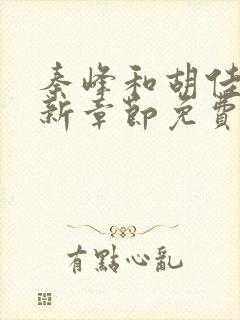 秦峰和胡佳
新章節免費
有點心亂